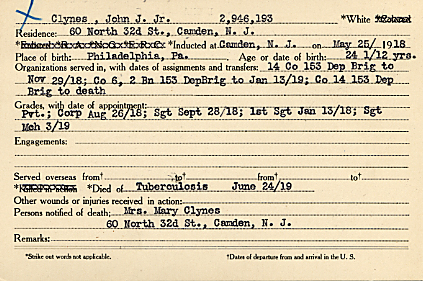 Clynes, John J. Jr. 2,946,193 *White *Colored
Residence: 60 North 32d St., Camden, N. J.
*Enlisted R A N G E R C *Inducted at Camden, N. J. on May 25/ 1918
Place of birth: Philadelphia, Pa. Age or date of birth: 24 1/12 yrs.
Organizations served in, with dates of assignments and transfers: 14 Co 153 Dep Brig to
Nov 29/18; Co 6, 2 Bn 153 DepBrig to Jan 13/19; Co 14 153 Dep
Brig to death
Grades, with date of appointment:
Pvt.; Corp Aug 26/18; Sgt Sept 28/18; 1st Sgt Jan 13/18; Sgt
Mch 3/19
Engagements:
Served overseas from† †to† from† to†
*Killed in action *Died of Tuberculosis June 24/19
Other wounds or injuries received in action:
Persons notified of death: Mrs. Mary Clynes
60 North 32d St., Camden, N. J.
Remarks:
*Strike out words not applicable. †Dates of departure from and arrival in the U. S.